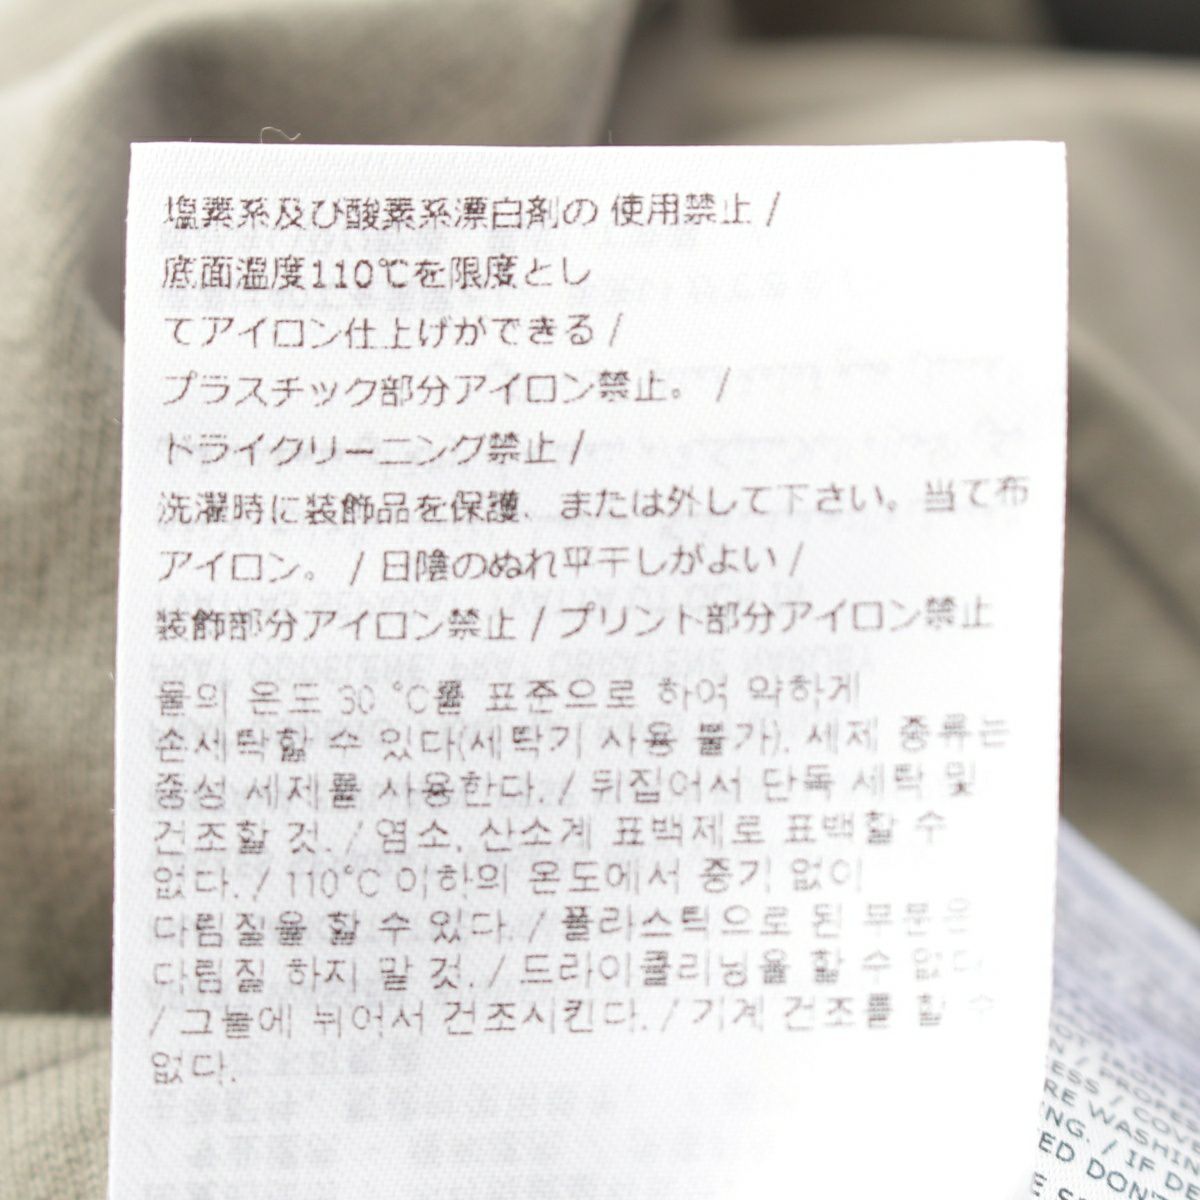 塩素系及び酸素系漂白剤の 使用禁止 /
底面温度110℃を限度とし
てアイロン仕上げができる /
プラスチック部分アイロン禁止。 /
ドライクリーニング禁止 /
洗濯時に装飾品を保護、または外して下さい。当て布
アイロン。 / 日陰のぬれ平干しがよい /
装飾部分アイロン禁止 / プリント部分アイロン禁止
물의 온도 30 °C를 표준으로 하여 약하게
손세탁할 수 있다(세탁기 사용 불가). 세제 종류는
중성 세제를 사용한다. / 뒤집어서 단독 세탁 및
건조할 것. / 염소, 산소계 표백제로 표백할 수
없다. / 110°C 이하의 온도에서 증기 없이
다림질을 할 수 있다. / 플라스틱으로 된 부분은
다림질 하지 말 것. / 드라이클리닝을 할 수 없다
/ 그늘에 뉘어서 건조시킨다. / 기계 건조를 할 수
없다.
ESS / COVE
RE WASHIN
NG. / IF DE
ED DON'T